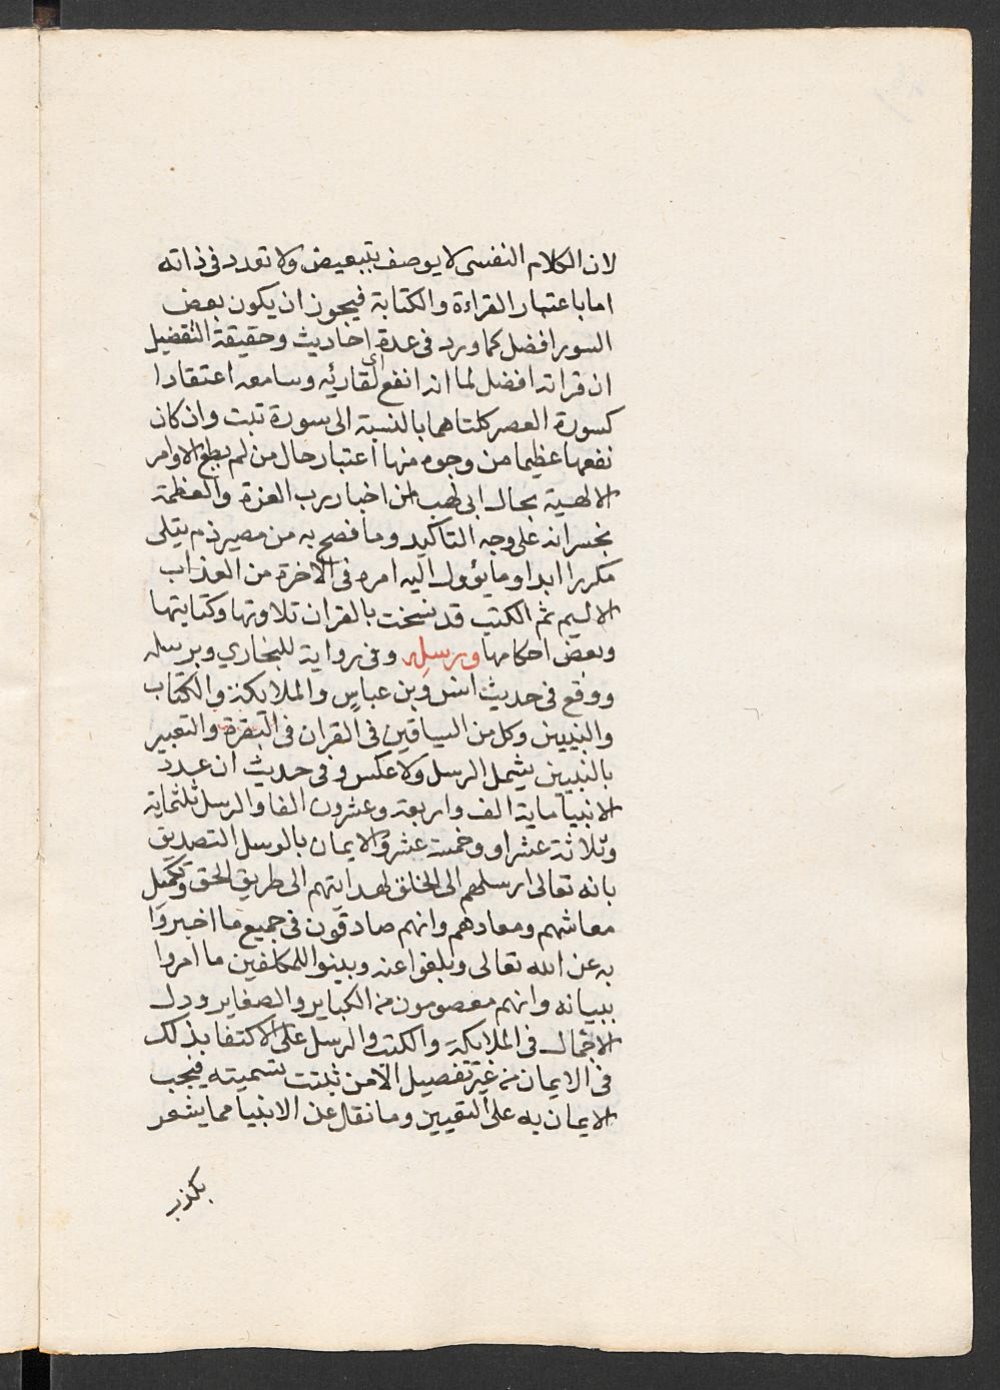 لان الكلام النفسى لا يوصف بتبعيض ولا تعدد فى ذاته
اما باعتبار القراءة والكتابة فيجوز ان يكون بعض
السور افضل كما ورد فى عدة احاديث وحقيقة التفضيل
ان قراته افضل لما انه انفع اى لقارئه وسامعه اعتقادا
كسورة العصر كلتاهما بالنسبة الى سورة تبت وان كان
نفعها عظيما من وجوه منها اعتبار حال من لم يطع الاوامر
الالهية بحال ابى لهب من اخبار رب العزة والعظمة
بخسرانه على وجه التاكيد وما فصح به من مصيرذم يتلى
مكررا ابدا وما يؤول اليه امره فى الاخرة من العذاب
الاليم ثم الكتب قد نسخت بالقران تلاوتها وكتابتها
وبعض احكامها ورسله وفى رواية للبخاري وبرسله
ووقع فى حديث انس وبن عباس والملايكة والكتاب
والنبيين وكل من السياقين فى القران فى البقرة والتعبير
بالنبيين يشمل الرسل ولا عكس وفى حديث ان عدد
الانبيا ماية الف واربعة وعشرون الفا والرسل ثلثماية
وثلاثة عشر او وخمسة عشر والايمان بالرسل التصديق
بانه تعالى ارسلهم الى الخلق لهدايتهم الى طريق الحق وتكميل
معاشهم ومعادهم وانهم صادقون فى جميع ما اخبروا
به عن الله تعالى وبلغوا عنه وبينوا للمكلفين ما امروا
ببيانه وانهم معصومون من الكباير والصغاير ودل
الاجمال فى الملايكة والكتب والرسل على الاكتفا بذلك
فى الايمان من غير تفصيل الا من ثبتت تسميته فيجب
الايمان به على التعيين وما نقل عن الانبيا مما يشعر
بكذب